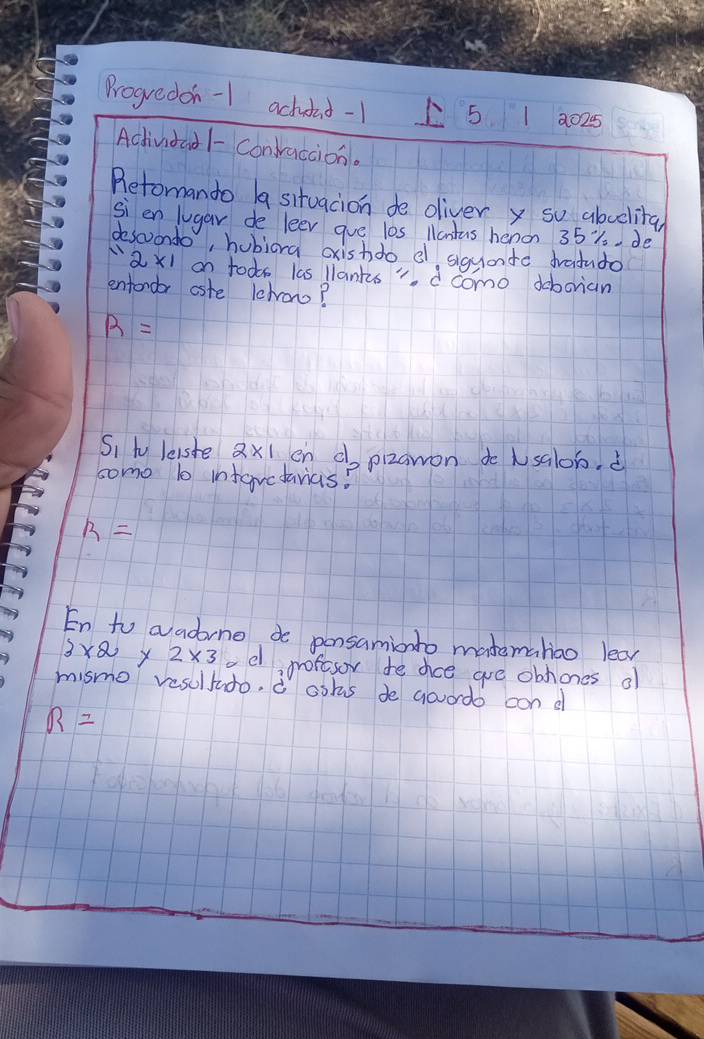 Progresión -1 actividad -1 5 1 2025
Actividad 1- Contracción.
Retomando la situación de oliver y su abuelita,
si en lugar de leer que las llantas tienen 35%. de
descuento, hubiera existido el siguiente tratado
"2x1 en todas las llantas". ¿como deberian
entender este letrero?
R =
Si tu leiste 2x1 en el pizarron de tu salon. ¿
como lo interpretarias?
R =
En tu cuaderno de pensamiento matematico leer
3x2 y 2x3, el profesor te dice que obtienes el
mismo resultado. ¿ estas de acuerdo con el
R =